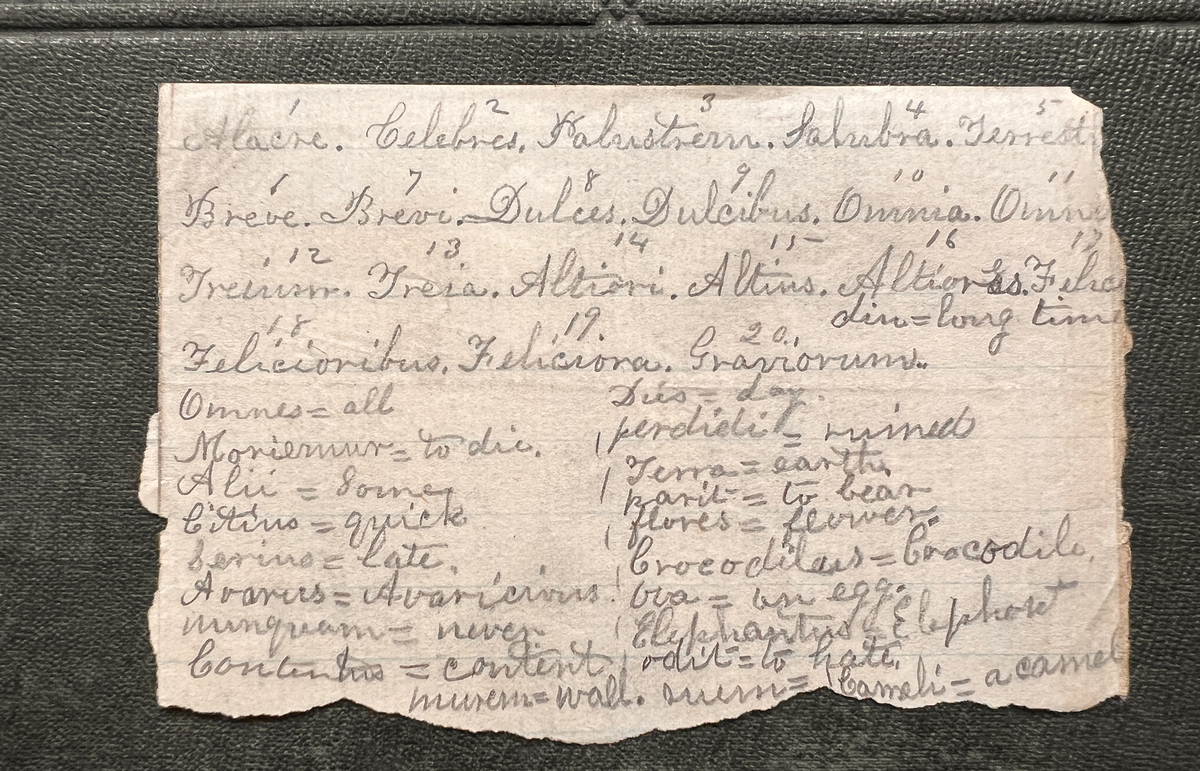 1 2 3 4 5
Alacre. Celebres. Palustrem. Salubra. Terrest
6 7 8 9 10 11
Breve. Brevi. Dulces. Dulcibus. Omnia. Omni
12 13 14 15 16 17
Treium. Treia. Altiori. Altius. Altiores. Felic
diu = long tim
18 19 20
Felicioribus. Feliciora. Graviorum.
Omnes = all
Moriemur = to die.
Alii = Some
Citius = quick
Serius = late.
Avarus = Avaricious.
nunquam = never.
Contentus = content
Dies = day.
perdidi = ruined
Terra = earth.
parit = to bear
flores = flower
Crocodilus = Crocodile.
Ova = an egg.
Elephantus = Elephant
odit = to hate.
murem = wall. Cameli = a camel